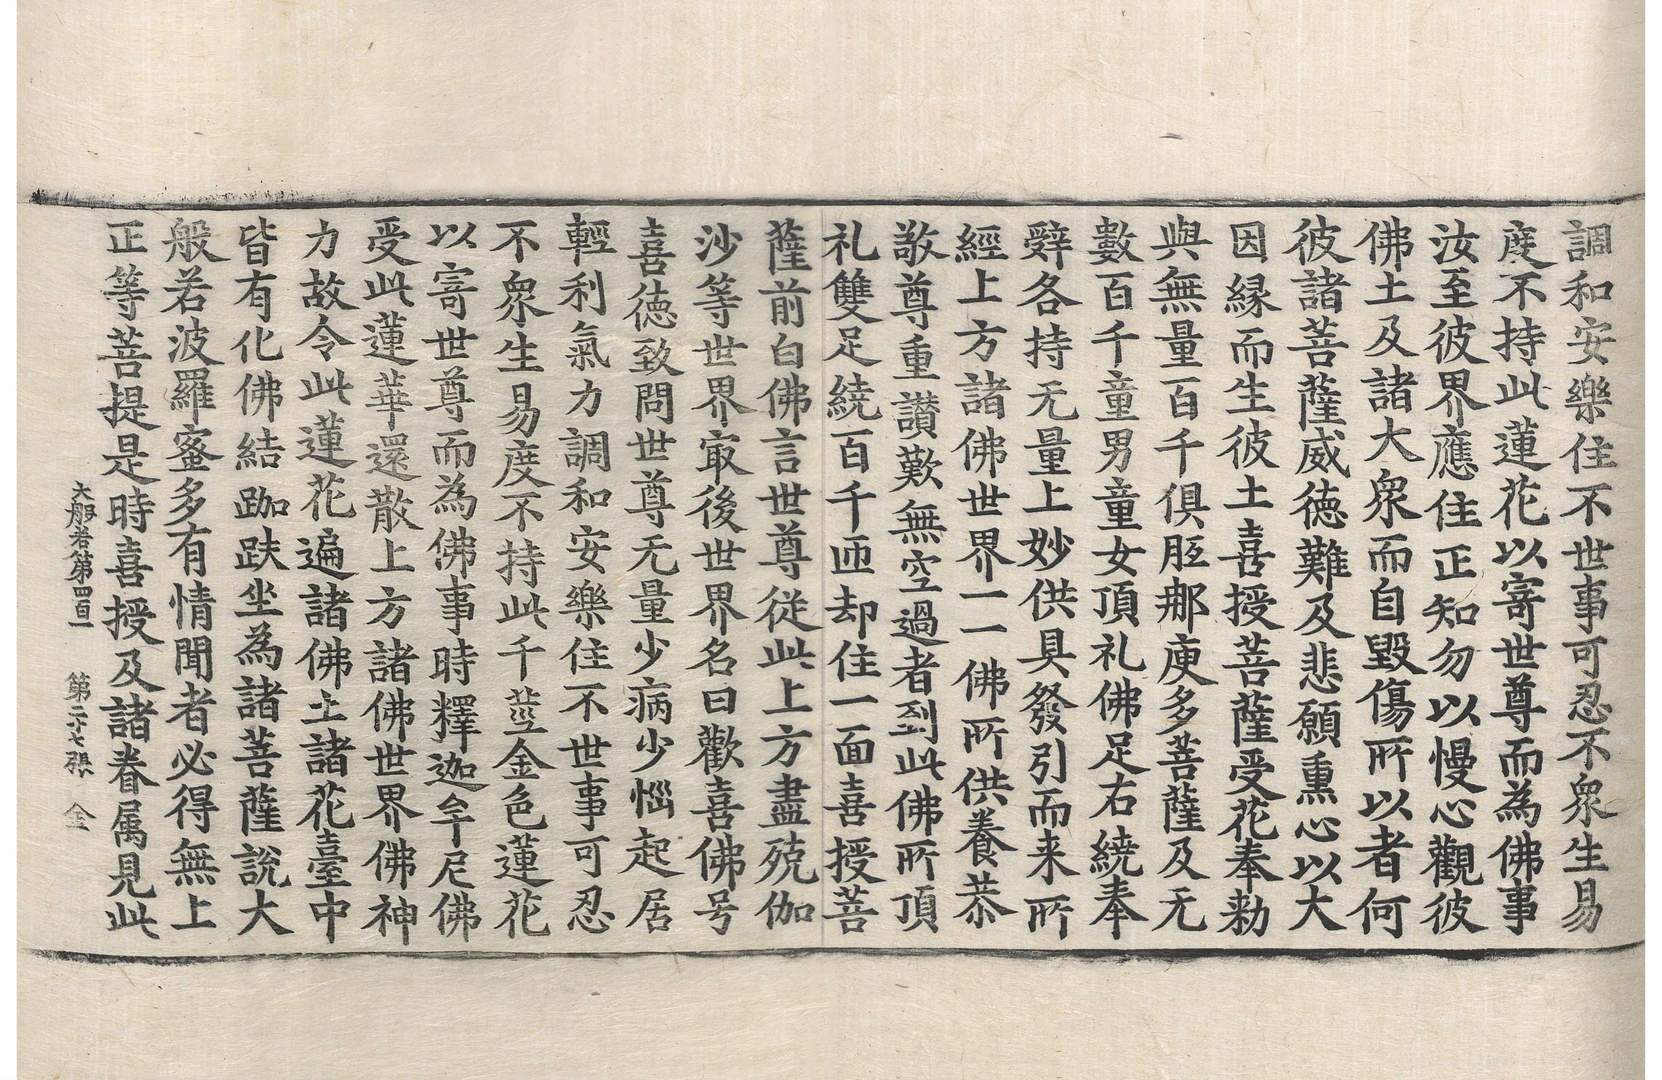 調和安樂住不世事可忍不衆生易
度不持此蓮花以寄世尊而為佛事
汝至彼界應住正知勿以慢心觀彼
佛土及諸大衆而自毀傷所以者何
彼諸菩薩威德難及悲願熏心以大
因縁而生彼土喜授菩薩受花奉勑
與無量百千俱胝那庾多菩薩及无
數百千童男童女頂礼佛足右繞奉
辤各持无量上妙供具發引而来所
經上方諸佛世界一一佛所供養恭
敬尊重讚歎無空過者到此佛所頂
礼雙足繞百千匝却住一面喜授菩
薩前白佛言世尊從此上方盡殑伽
沙等世界㝡後世界名曰歡喜佛号
喜德致問世尊无量少病少惱起居
輕利氣力調和安樂住不世事可忍
不衆生易度不持此千莖金色蓮花
以寄世尊而為佛事時釋迦牟尼佛
受此蓮華還散上方諸佛世界佛神
力故令此蓮花遍諸佛土諸花臺中
皆有化佛結跏趺坐為諸菩薩說大
般若波羅蜜多有情聞者必得無上
正等菩提是時喜授及諸眷属見此
大般若第四百一　第二十七張　金